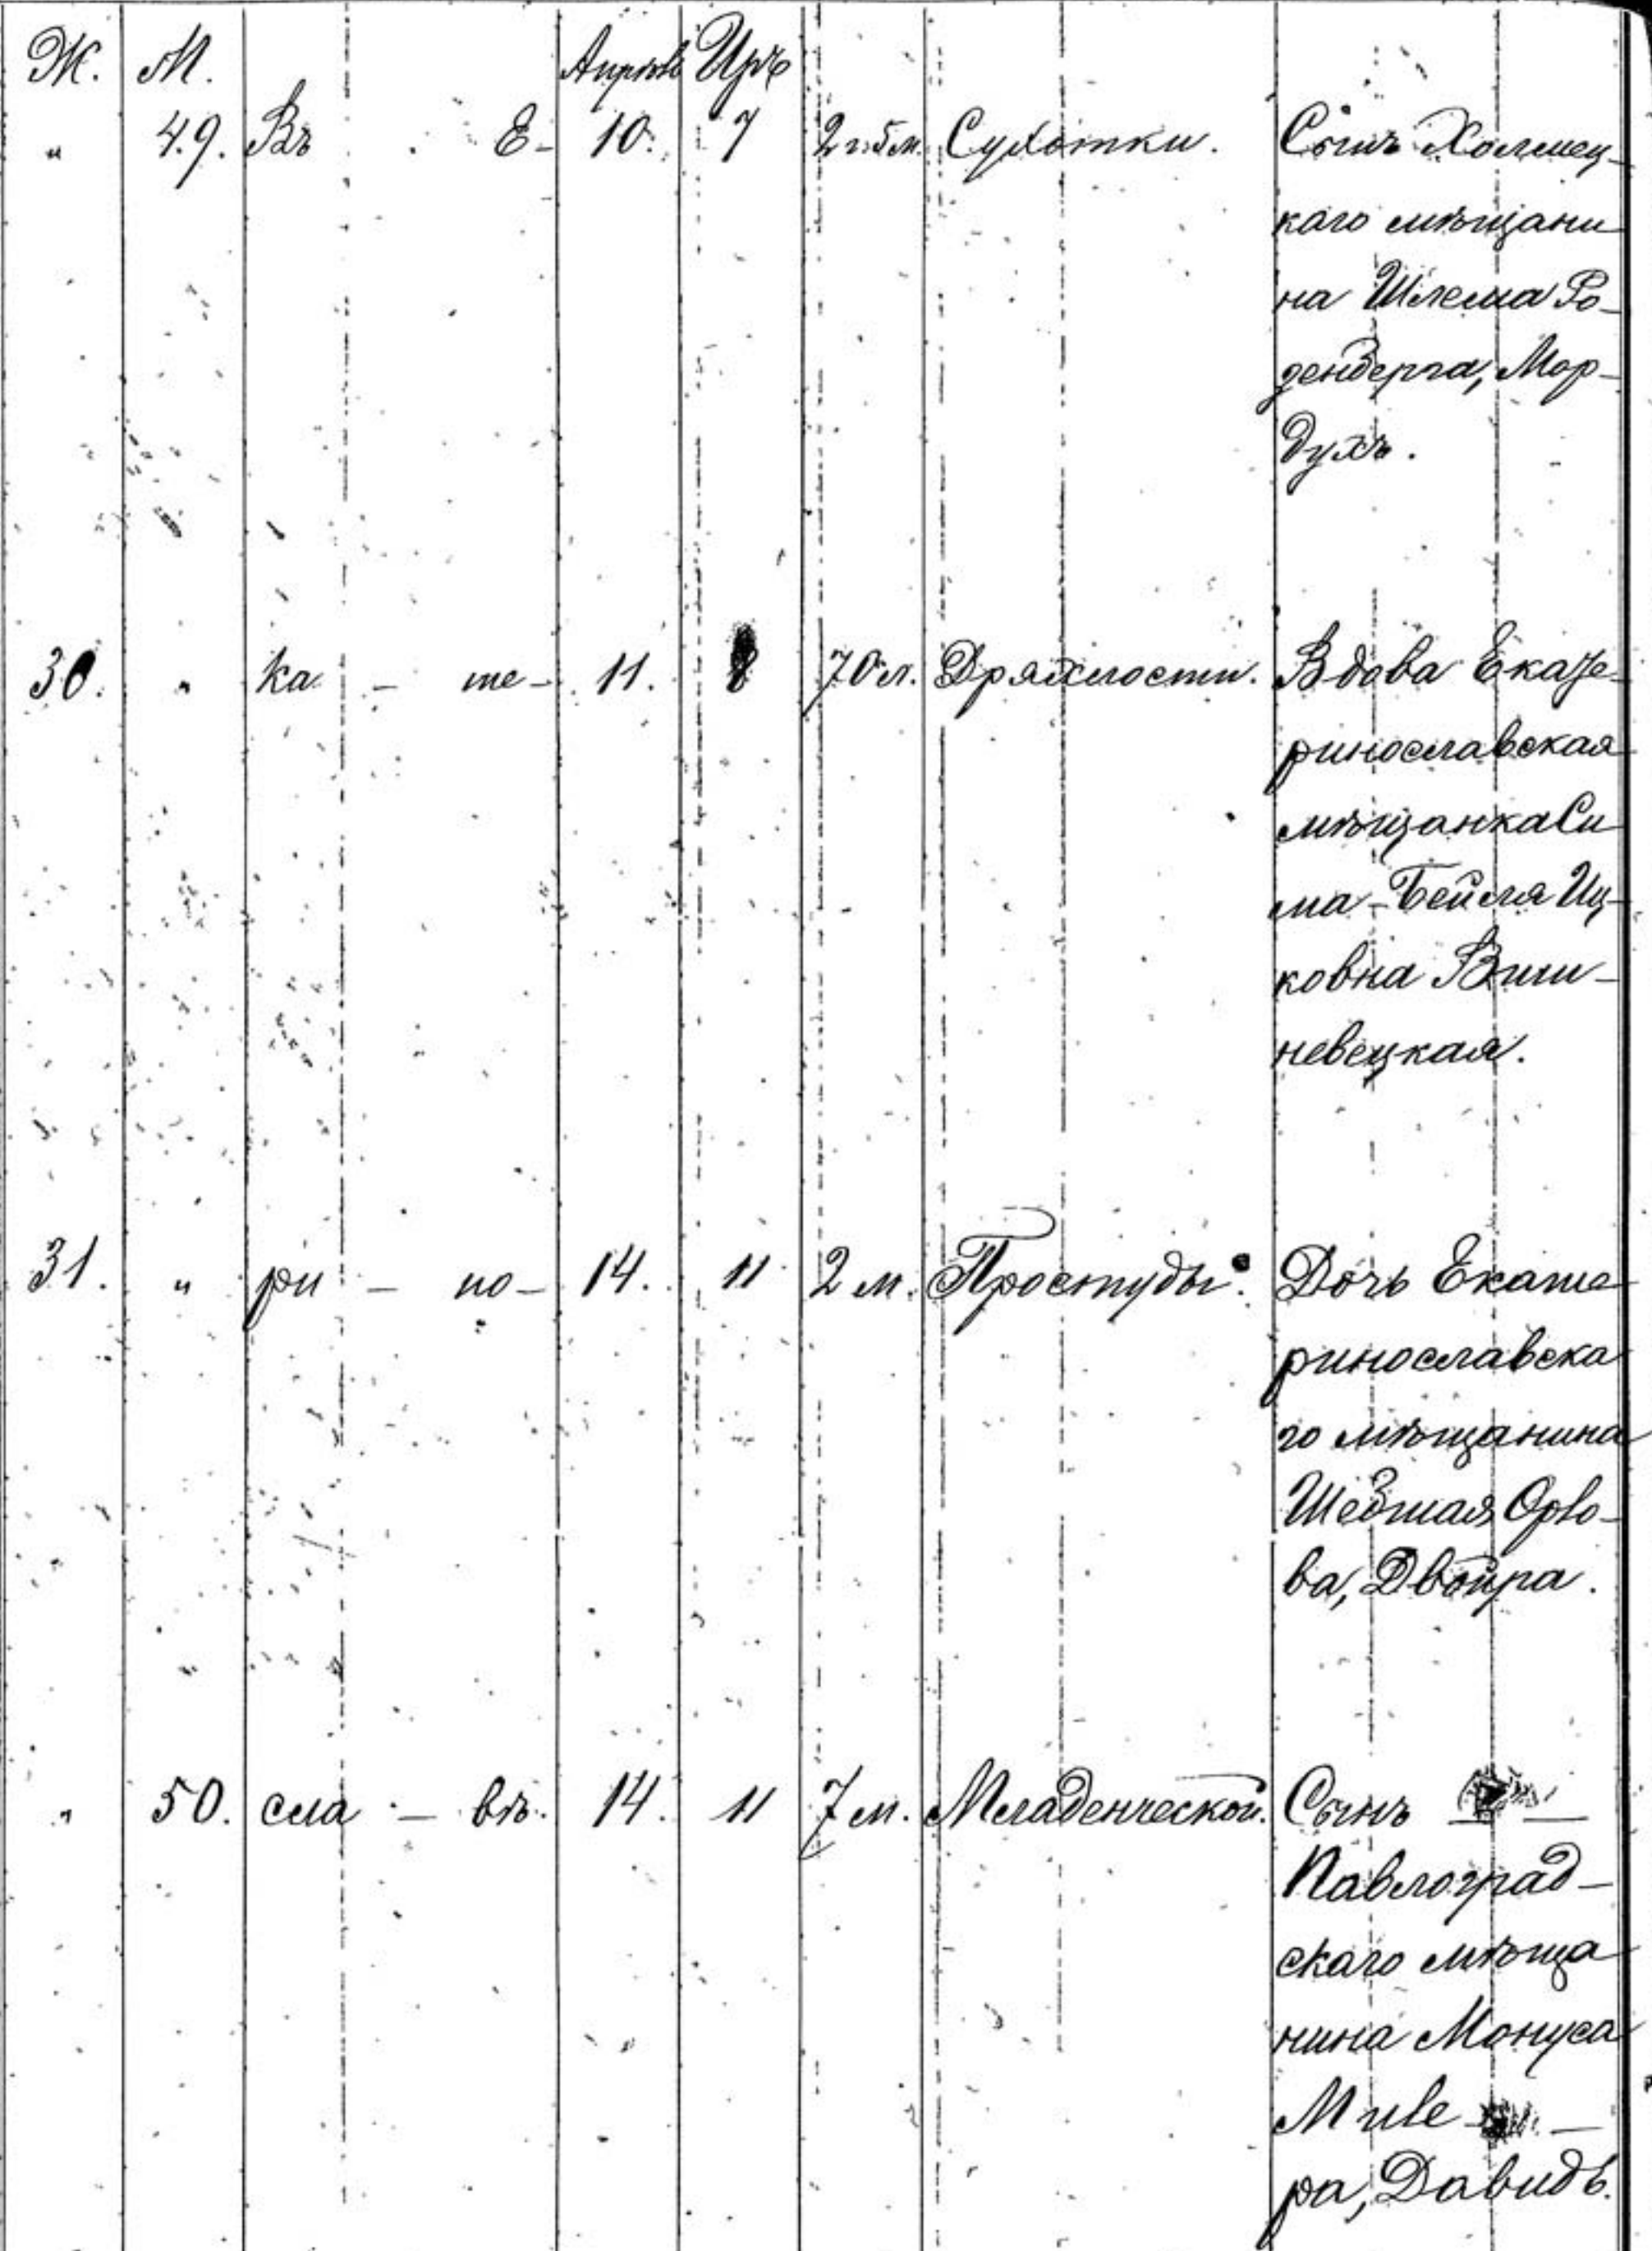 Ж. М. Апрѣль Иръ
" 49. Въ Е- 10. 7 2 г. 5 м. Сухотки. Сынъ Холмец-
каго мѣщани
на Шлема Ро-
зенберга, Мор-
духъ.
30. " ка - те- 11. 8 70 л. Дряхлости. Вдова Екате-
ринославская
мѣщанка Си
ма-Бейля Иц-
ковна Виш-
невецкая.
31. " ри - но- 14. 11 2 м. Простуды. Дочь Екате
ринославска
го мѣщанина
Орло-
ва, Двойра.
" 50. сла - вѣ. 14. 11 7 м. Младенческой. Сынъ —
Павлоград-
скаго мѣща
нина Монуса
Миле —
ра, Давидъ.